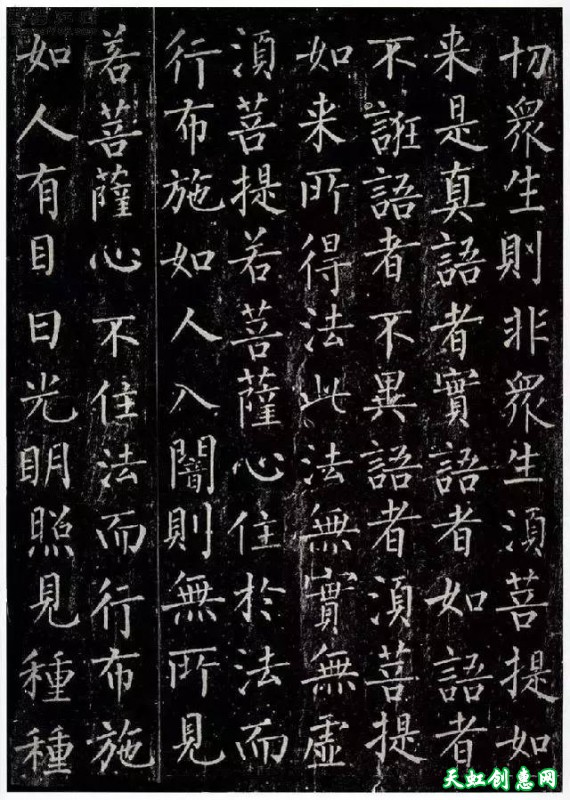 切衆生則非衆生湏菩提如
来是真語者實語者如語者
不誑語者不異語者湏菩提
如来所得法此法無實無虛
湏菩提若菩薩心住於法而
行布施如人入闇則無所見
若菩薩心不住法而行布施
如人有目日光明照見種種
天虹创惠网